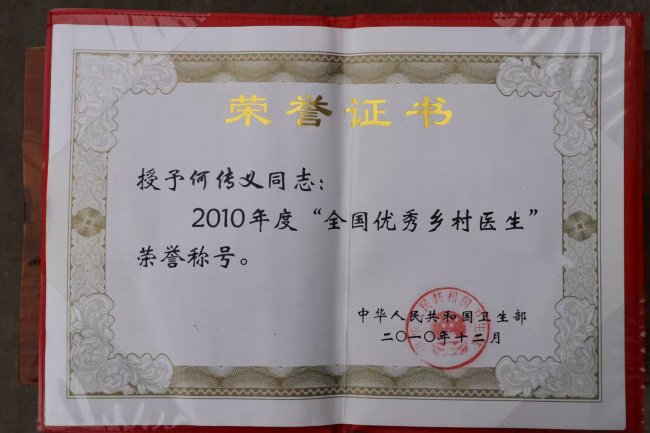 荣誉证书
授予何传义同志：
2010年度“全国优秀乡村医生”
荣誉称号。
中华人民共和国卫生部
二〇一〇年十二月